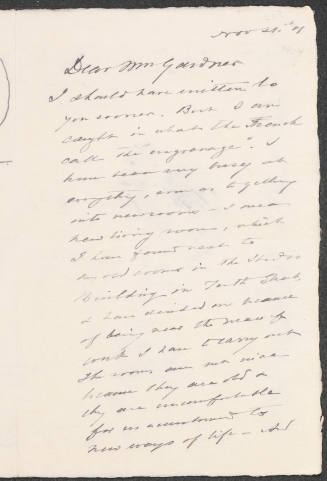 Nov 21st 01
Dear Mrs Gardner
I should have written to
you sooner. But I am
caught in what the French
call the "engrenage". I
have been very busy at
everything, even as to getting
into new rooms — I mean
new living rooms, which
I have found next to
my old rooms in the Studio
Building in Tenth Street,
& have decided on because
of being near the mass of
work I have to carry out.
The rooms are nice
because they are old &
they are uncomfortable
for us accustomed to
new ways of life — And